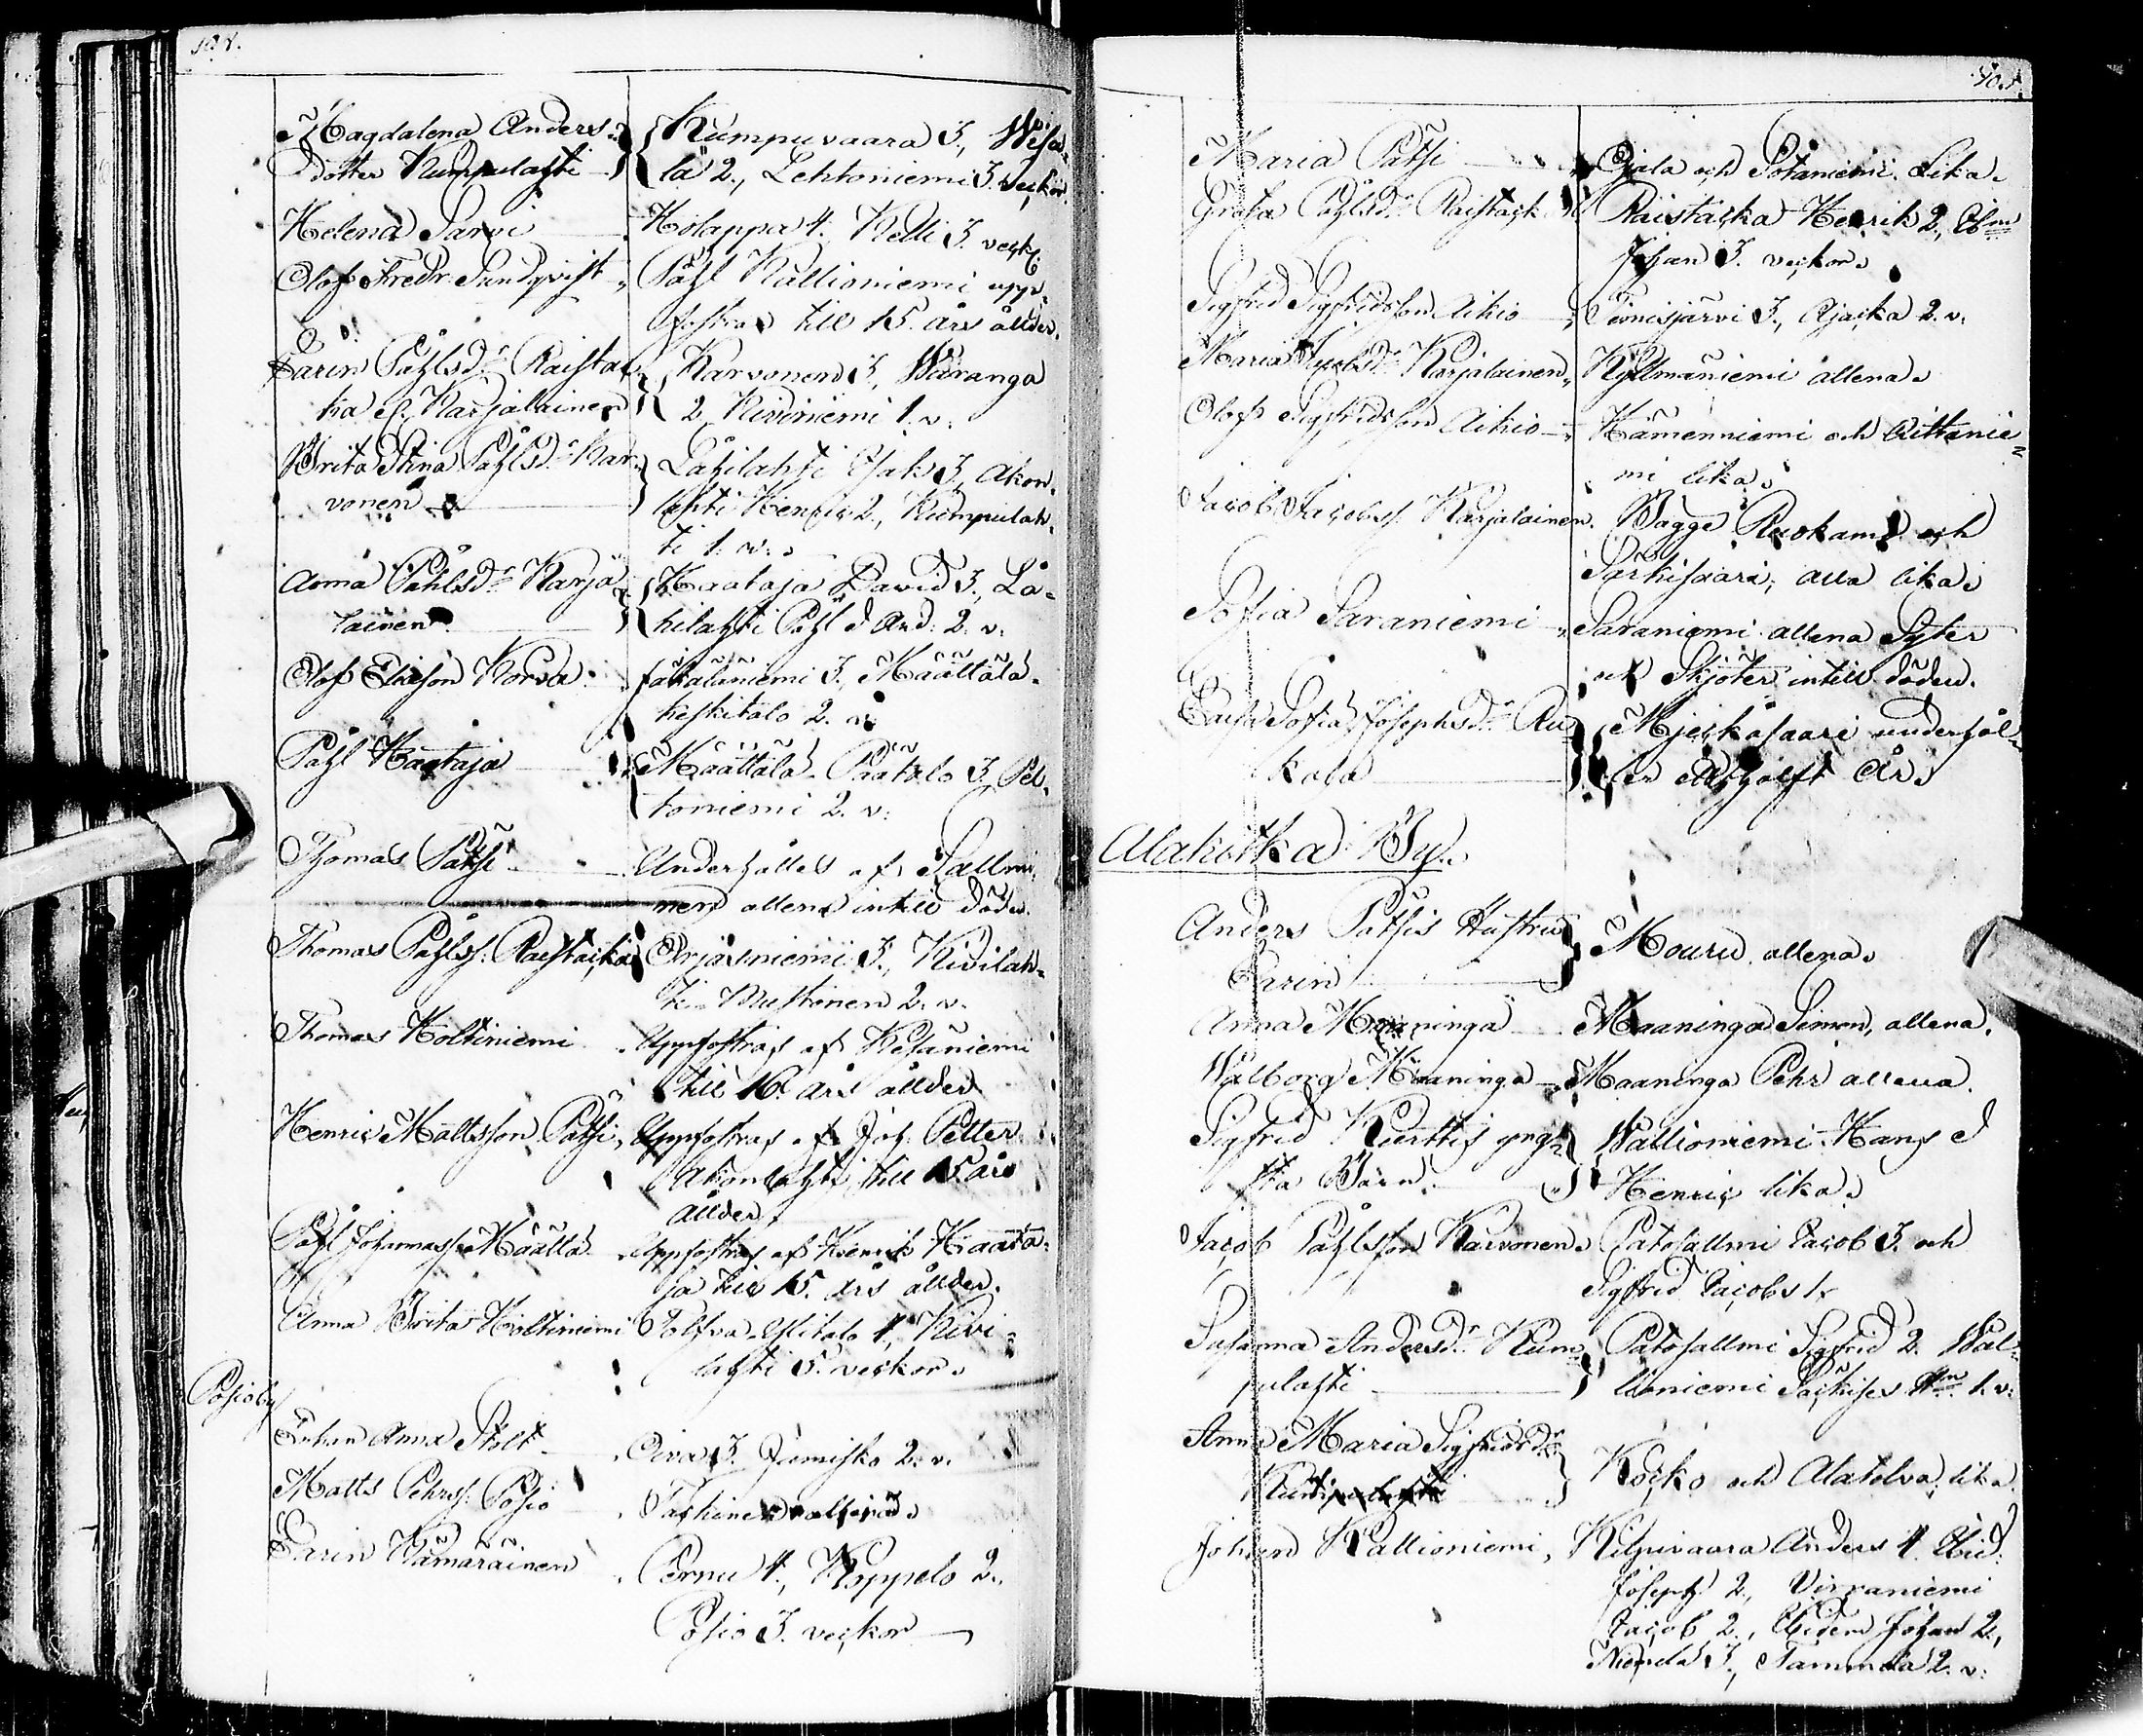 Magdalena Anders-
dotter Kumpulahti
Kumpuvaara 3., Wisa-
la 2., Lehtoniemi 3. veckor.
Helena Sarvi
Holappa 4. Kelli 3. veck.
Olof Fredr. Sundqvist
Påhl Kallioniemi upp-
fostras till 15. års ållder.
Carin Påhlsdr Raista-
ka el. Karjalainen
Karvonen 3, Waranga
2 Kiviniemi 1. v.
Brita Stina Påhlsdr Kar-
vonen
Lahilahti Isak 3, Akon-
lahti Henric 2., Kumpulah-
ti 1. v.
Anna Påhlsdr Karja-
lainen
Kaataja David 3., La-
hilahti Påhl & And: 2. v.
Olof Eliasson Korva
Jakalaniemi 3. Määttälä-
keskitalo 2. v.
Påhl Kaataja
Määttälä Päätalo 3. Pel-
toniemi 2. v.
Thomas Pätsi
Underhålles af Sallmi-
nen allena intill döden.
Thomas Påhlss. Raistacka
Orjasniemi 3., Kivilah-
ti Mustonen 2. v.
Thomas Holtiniemi
Uppfostras af Kesäniemi
till 16. års ållder
Henric Mattsson Pätsi
Uppfostras af Joh. Petter
Akonlahti, till 15. års
ållder.
Påhl Johanness. Määttä
Uppfostras af Henrik Kaata-
ja till 15. års ållder.
Anna Brita Holtiniemi
Tolfva Ylitalo 4, Kivi-
lahti 5. veckor.
Posioby
Enkan Anna Stolt
Oiva 3. Jumisko 2. v.
Matts Pehrss. Posio
Taskinen allena.
Carin Kämäräinen
Pernu 4., Koppelo 2.,
Posio 3. veckor
Maria Pätsi
Ojala och Sotaniemi lika.
Greta Påhlsdr Raistack
Raistacka Henrik 2.,
Johan 3. veckor.
Sigfrid Sigfridsson Aikio
3., Ajacka 2. v.
Maria Karjalainen
Kyllmäniemi allena.
Olof Sigfridsson Aikio
Hämenniemi och Aittanie-
mi lika.
Jacob Jacobss. Karjalainen
Bagge Ruokamo och
Särkisaari, alla lika.
Sofia Saraniemi
Saraniemi allena Syter
och Skjöter intill döden.
Caisa Sofia Josephsdr Ru-
kala
Mjeskäsaari underhål-
er ett hålft År.
Alakitka By.
Anders Pätsis Hustru
Carin
Mouru allena.
Anna Maaninga
Maaninga Simon, allena.
Walborg Maaninga
Maaninga Pehr allena.
Sigfrid Kurttis yng-
sta Barn
Wallioniemi Hans &
Henric lika.
Jacob Påhlsson Karvonen
Patosallmi Jacob 3. och
Sigfrid Jacobs 1.
Susanna Andersdr Kum-
pulahti
Patosallmi Sigfrid 2. Wal-
lioniemi 1. v.
Anna Maria Sigfridsdr
Kocko och Alatolva lika.
Johan Kallioniemi
Kilpivaara Anders 4. Ibid.
Joseph 2., Virraniemi
Jacob 2., Ibidem Johan 2.,
Niemelä 3., Tammela 2. v.